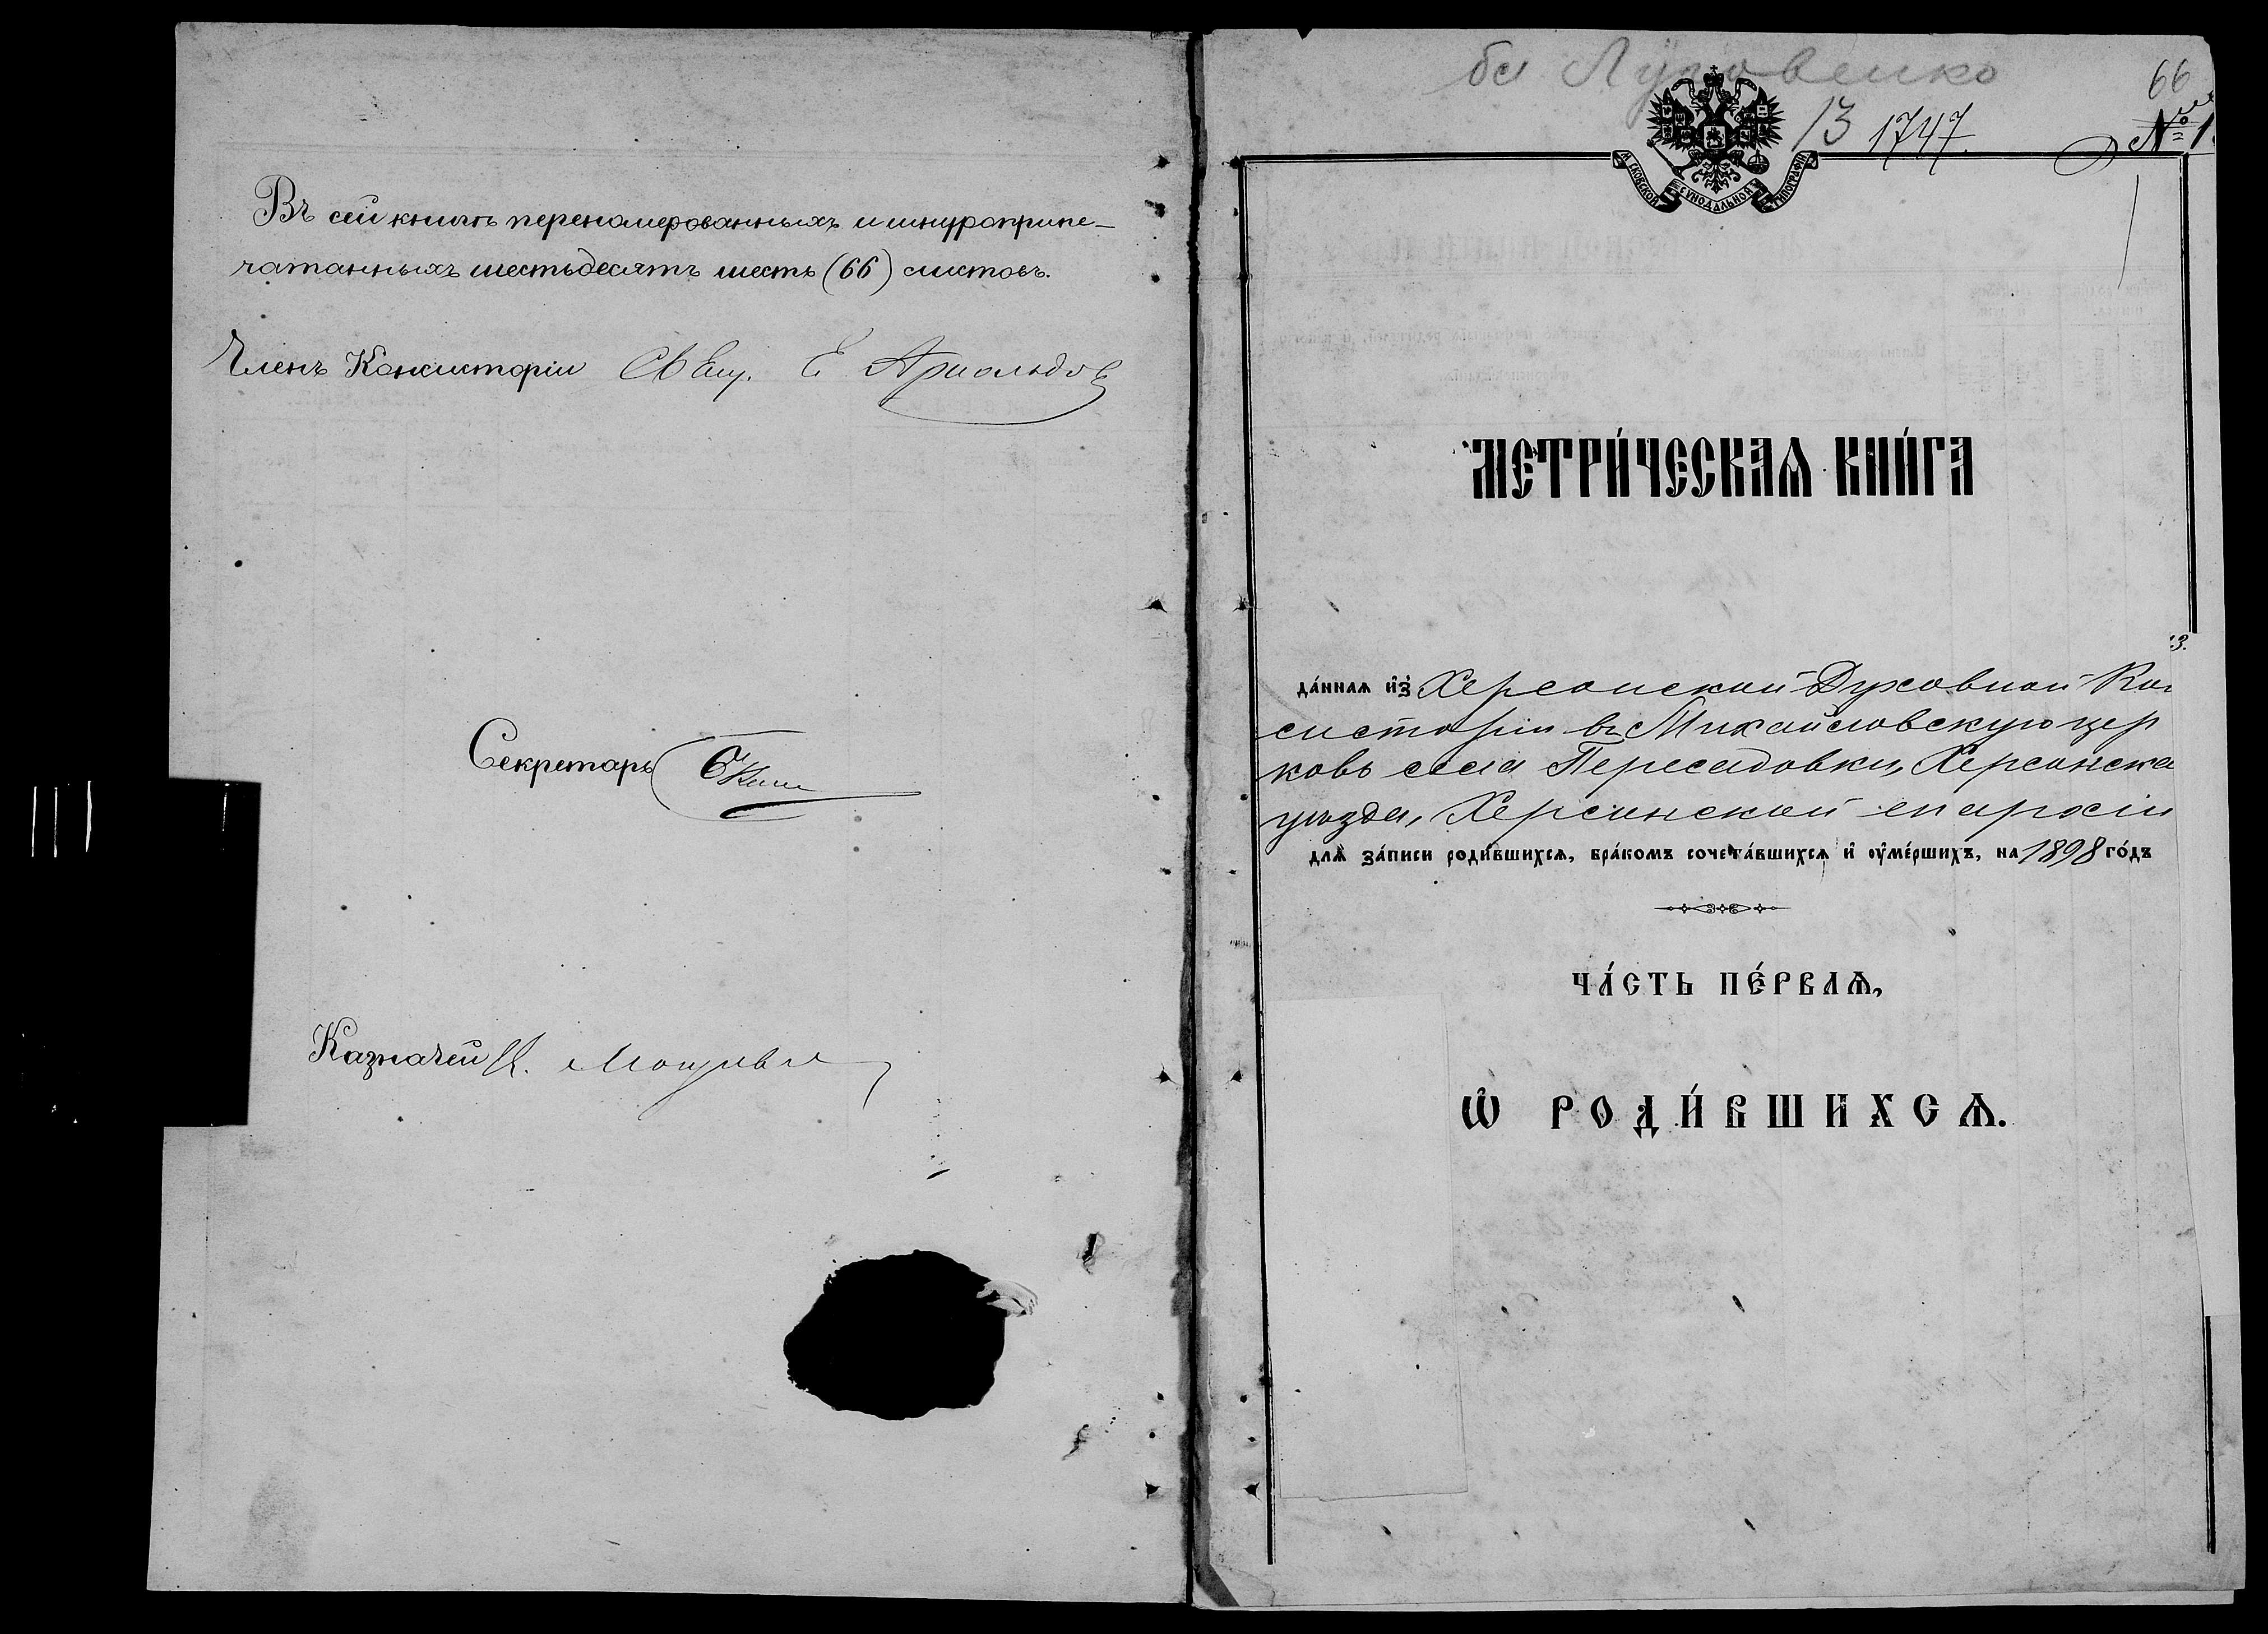 Въ сей книгѣ перенумерованныхъ и шнуроприпе-
чатанныхъ шестьдесятъ шесть (66) листовъ.
Членъ Консисторіи Свящ. Е Арнольдов
Секретарь
Казначей
66
13 1747.
№ 1
МОСКОВСКОЙ СѴНОДАЛЬНОЙ ТИПОГРАФІИ
МЕТРИ́ЧЕСКАѦ КНИ́ГА
З.
да́ннаѧ и҆з̾ Херсонской Духовной Ко
систоріи въ Михайловскую цер
ковь села Пересадовки, Херсонска
уѣзда, Херсонской епархіи
длѧ̀ за́писи роди́вшихсѧ, бра́комъ сочета́вшихсѧ и҆ ᲂу҆ме́ршихъ, на 1898 го́дъ
ЧА́СТЬ ПЕ́РВАѦ,
Ѽ РОДИ́ВШИХСѦ.